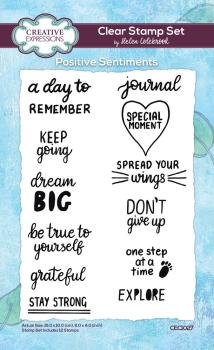 CREATIVE
EXPRESSIONS
Clear Stamp Set
by Helen Colebrook
Positive Sentiments
a day to
REMEMBER
KEEP
going
dream
BIG
be true to
yourself
grateful
STAY STRONG
journal
SPECIAL
MOMENT
SPREAD YOUR
wings
DON'T
give up
one step
at a
time
EXPLORE
Stamp Set Includes 12 Stamps
CEC1027